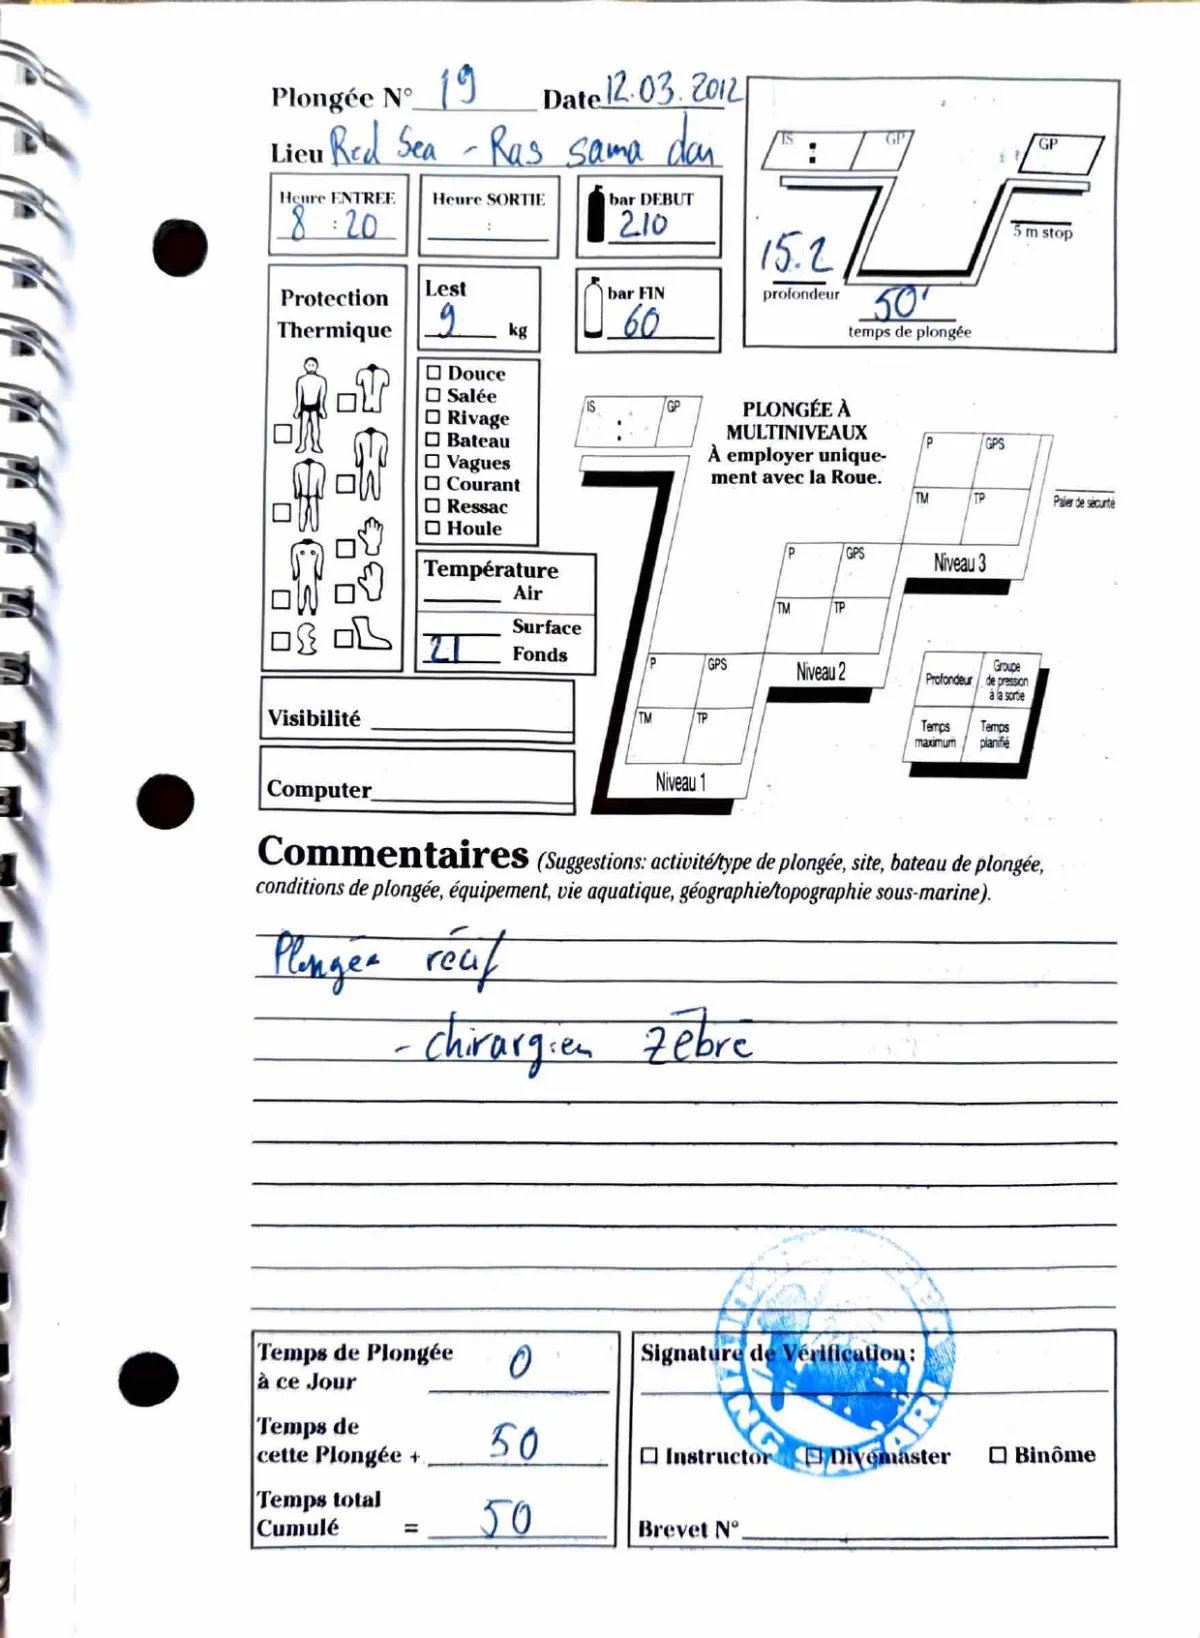 Plongée N° 19 Date 12.03.2012
Lieu Red Sea - Ras sama dai
Heure ENTREE
8 : 20
Heure SORTIE
:
bar DEBUT
210
IS : GP
GP
15.2
profondeur
50'
temps de plongée
5 m stop
Protection
Thermique
Lest
9 kg
bar FIN
60
Douce
Salée
Rivage
Bateau
Vagues
Courant
Ressac
Houle
Température
Air
Surface
21 Fonds
Visibilité
Computer
IS : GP
PLONGÉE À
MULTINIVEAUX
À employer unique-
ment avec la Roue.
P GPS
TM TP
Niveau 3
Palier de sécurité
P GPS
TM TP
Niveau 2
P GPS
TM TP
Niveau 1
Profondeur
Groupe
de pression
à la sortie
Temps
maximum
Temps
planifié
Commentaires (Suggestions: activité/type de plongée, site, bateau de plongée,
conditions de plongée, équipement, vie aquatique, géographie/topographie sous-marine).
Plongée récif
- chirargien zébré
Temps de Plongée
à ce Jour 0
Temps de
cette Plongée + 50
Temps total
Cumulé = 50
Signature de Vérification:
Instructor Divemaster Binôme
Brevet N°
DIVING SAFARI